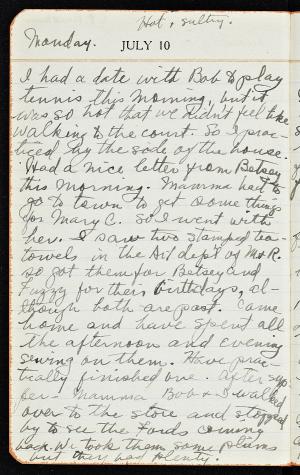 Hot & sultry.
Monday.
JULY 10
I had a date with Bob to play
tennis this morning, but it
was so hot that we didn't feel like
walking to the court. So I prac-
ticed by the side of the house.
Had a nice letter from Betsey
this morning. Mamma had to
go to town to get some things
for Mary C. so I went with
her. I saw two stamped tea-
towels in the Art dept of M & R.
so got them for Betsey and
Fuzzy for their birthdays, al-
though both are past. Came
home and have spent all
the afternoon and evening
sewing on them. Have prac-
tically finished one. After sup-
per Mamma Bob & I walked
over to the store and stopped
by to see the Fords coming
back. We took them some plums
but they had plenty.